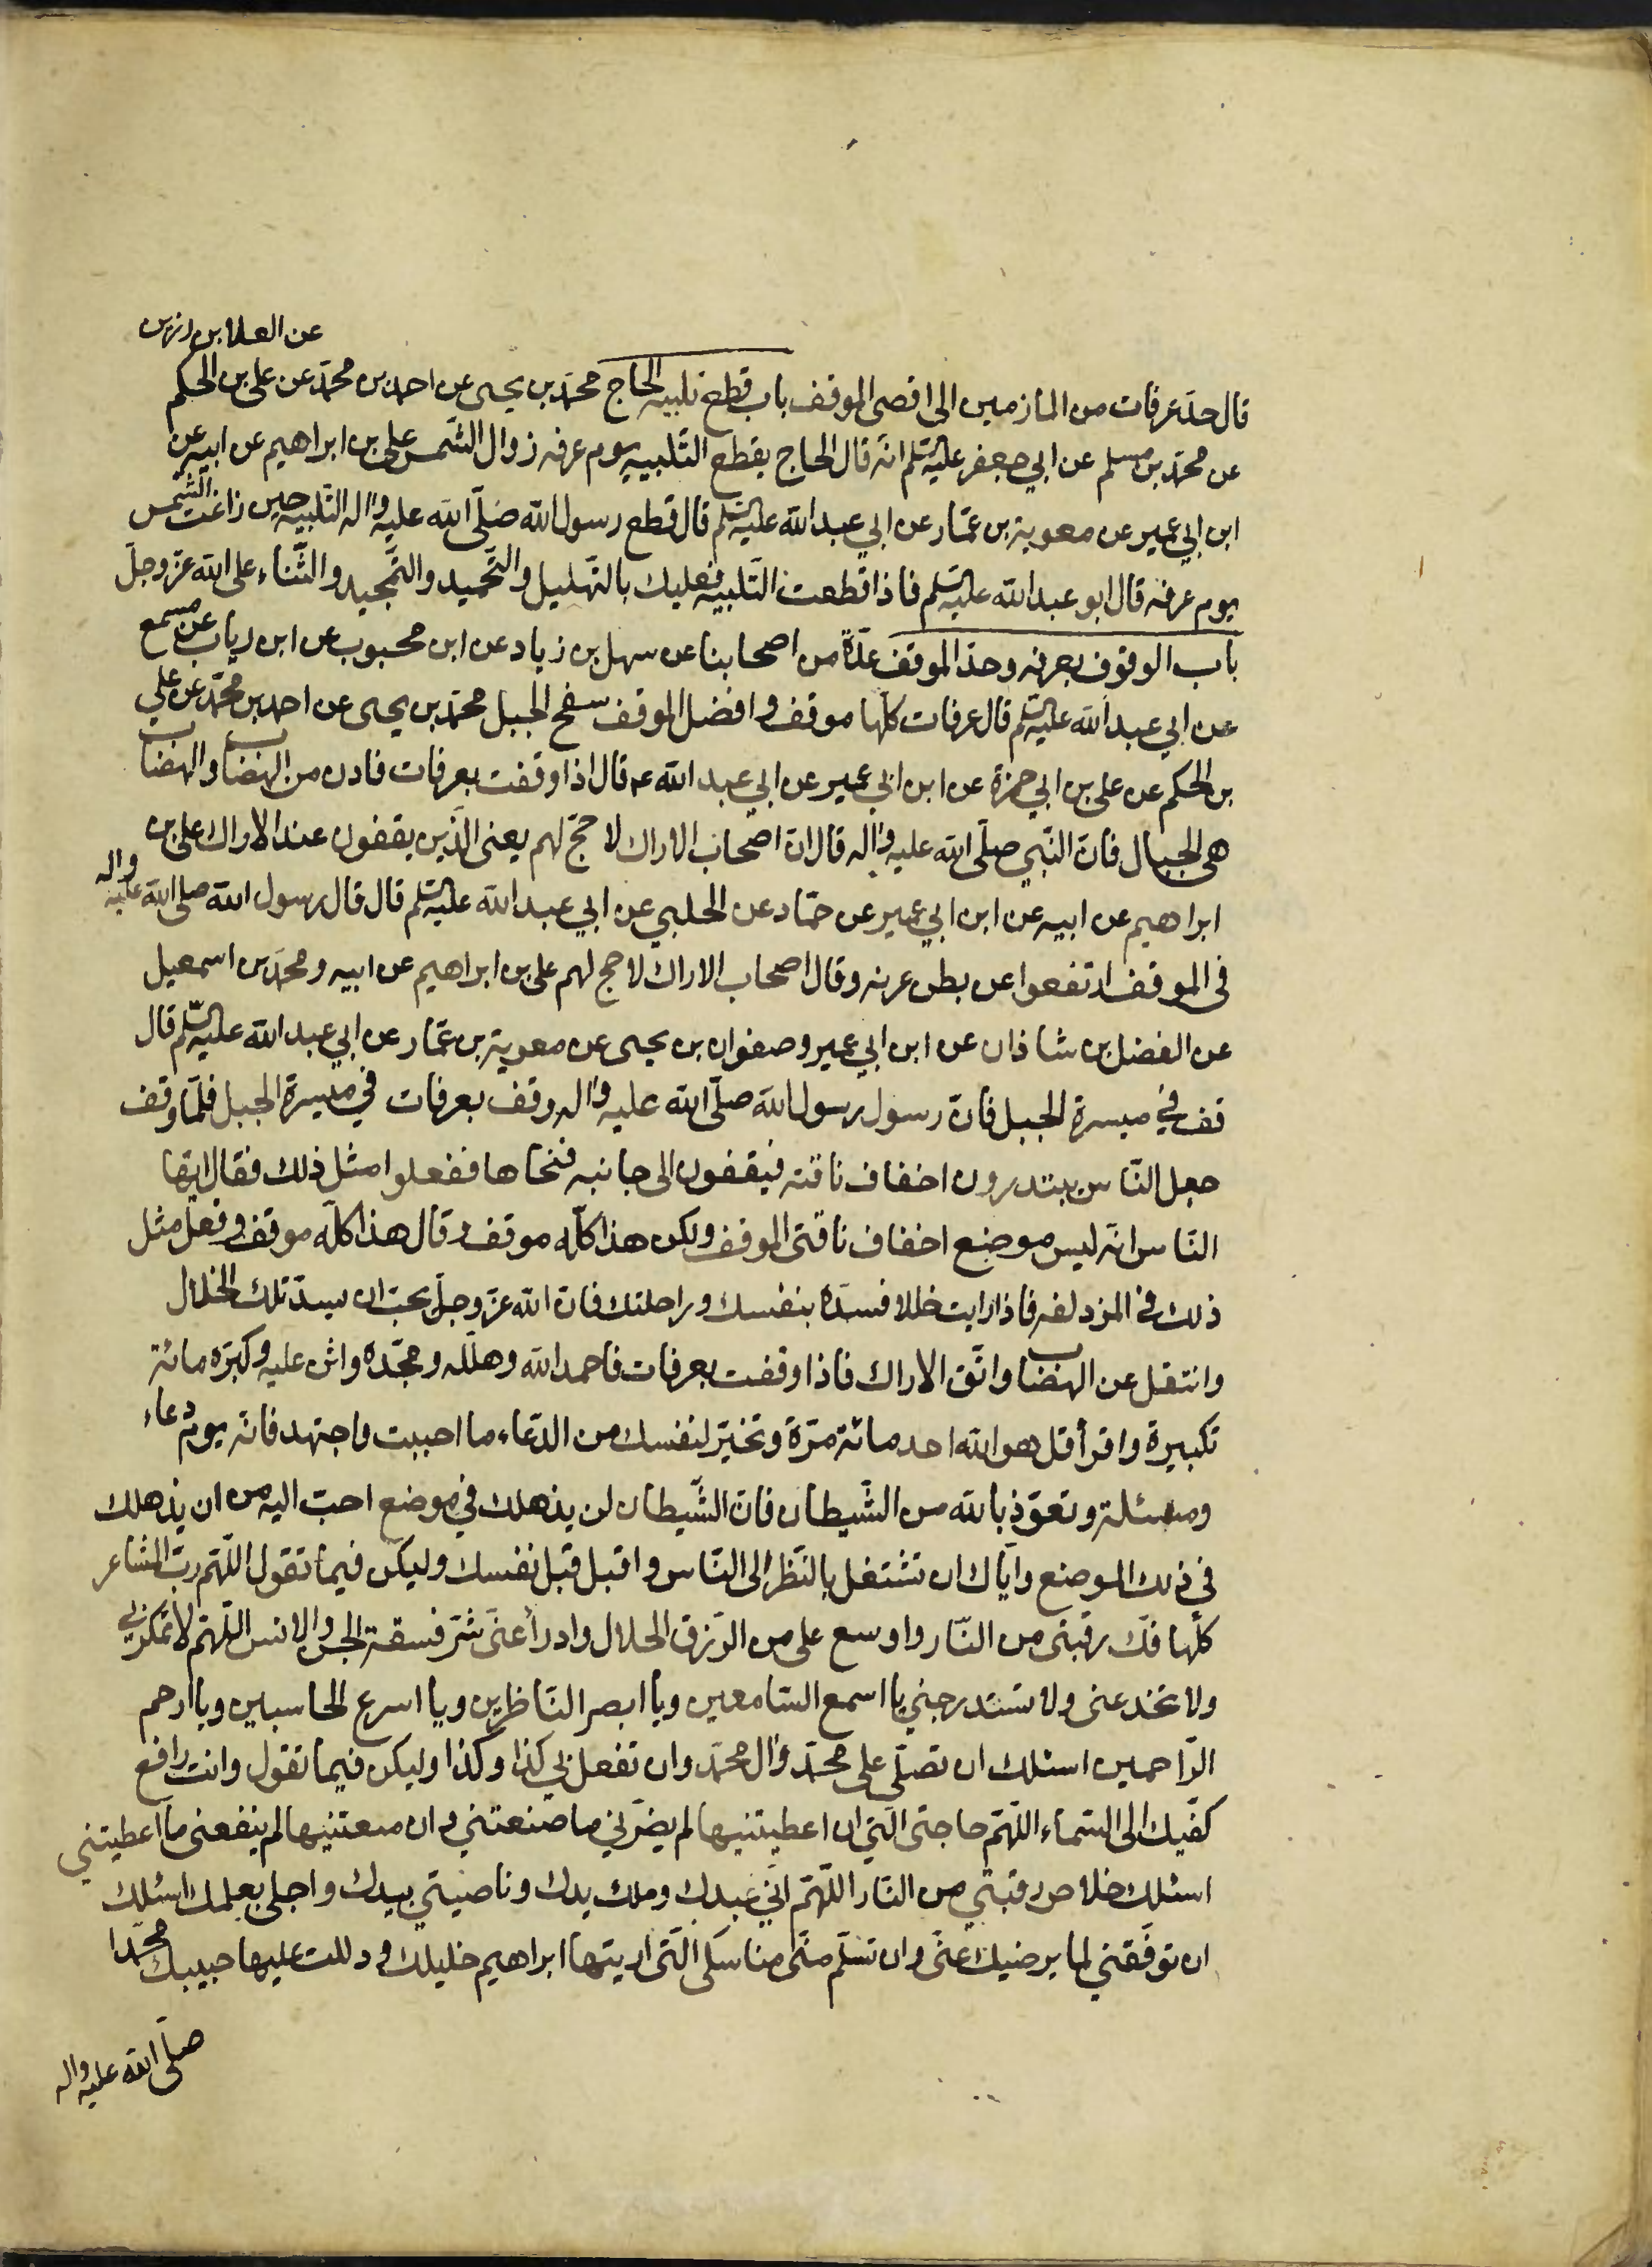 عن العلا بن رزين
قال حدّ عرفات من المازمين الى اقصى الموقف باب قطع تلبيه الحاج محمّد بن يحيى عن احمد بن محمّد عن على بن الحكم
عن محمّد بن مسلم عن ابي جعفر عليه السّلم انّه قال الحاج يقطع التّلبيه يوم عرفه زوال الشّمس على بن ابراهيم عن ابيه عن
ابن ابي عمير عن معوية بن عمّار عن ابي عبد الله عليه السّلم قال قطع رسول الله صلّى الله عليه واله التّلبيه حين زاغت الشّمس
يوم عرفه قال ابو عبد الله عليه السّلم فاذا قطعت التّلبيه فعليك بالتّهليل والتّحميد والتّمجيد والثّناء على الله عزّ وجلّ
باب الوقوف بعرفه وحدّ الموقف عدّة من اصحابنا عن سهل بن زياد عن ابن محبوب عن ابن رياب عن مسمع
عن ابي عبد الله عليه السّلم قال عرفات كلّها موقف وافضل الموقف سفح الجبل محمّد بن يحيى عن احمد بن محمّد عن علي
بن الحكم عن على بن ابي حمزة عن ابن ابي عمير عن ابي عبد الله ع قال اذا وقفت بعرفات فادن من الهضاب والهضاب
هى الجبال فانّ النّبي صلّى الله عليه واله قال انّ اصحاب الاراك لا حجّ لهم يعنى الّذين يقفون عند الاراك على بن
ابراهيم عن ابيه عن ابن ابي عمير عن حمّاد عن الحلبي عن ابي عبد الله عليه السّلم قال قال رسول الله صلى الله عليه واله
فى الموقف ارتفعوا عن بطن عرنه وقال اصحاب الاراك لا حج لهم على بن ابراهيم عن ابيه ومحمّد بن اسمعيل
عن الفضل بن شاذان عن ابن ابي عمير وصفوان بن يحيى عن معوية بن عمّار عن ابي عبد الله عليه السّلم قال
قف في ميسرة الجبل فانّ رسول رسول الله صلّى الله عليه واله وقف بعرفات في ميسرة الجبل فلمّا وقف
جعل النّاس يبتدرون اخفاف ناقته فيقفون الى جانبه فنحّاها ففعلوا مثل ذلك فقال ايّها
النّاس انّه ليس موضع اخفاف ناقتى الموقف ولكن هذا كلّه موقف وقال هذا كلّه موقف وفعل مثل
ذلك فى المزدلفه فاذا رايت خللا فسدّه بنفسك وراحلتك فانّ الله عزّ وجلّ يحبّ ان يسدّ تلك الخلال
وانتقل عن الهضاب واتّق الاراك فاذا وقفت بعرفات فاحمد الله وهلّله ومجّده واثن عليه وكبّره مائة
تكبيرة واقرأ قل هو الله احد مائة مرّة وتخيّر لنفسك من الدّعاء ما احببت واجتهد فانّه يوم دعاء
ومسئلة وتعوّذ بالله من الشّيطان فانّ الشّيطان لن يذهلك في موضع احبّ اليه من ان يذهلك
فى ذلك الموضع وايّاك ان تشتغل بالنّظر الى النّاس واقبل قبل نفسك وليكن فيما تقول اللّهمّ ربّ المشاعر
كلّها فكّ رقبتى من النّار واوسع على من الرّزق الحلال وادرأ عنّى شرّ فسقة الجن والانس اللّهمّ لا تمكر بي
ولا تخدعنى ولا تستدرجني يا اسمع السّامعين ويا ابصر النّاظرين ويا اسرع الحاسبين ويا ارحم
الرّاحمين اسئلك ان تصلّى على محمّد وال محمّد وان تفعل بي كذا وكذا وليكن فيما تقول وانت رافع
كفّيك الى السّماء اللّهمّ حاجتى الّتي ان اعطيتنيها لم يضرّني ما صنعتني وان منعتنيها لم ينفعنى ما اعطيتني
اسئلك خلاص رقبتي من النّار اللّهمّ انّي عبدك وملك يدك وناصيتي بيدك واجلى بعلمك اسئلك
ان توفّقني لما يرضيك عنّى وان تسلّم منّى مناسكى الّتى اريتها ابراهيم خليلك ودللت عليها حبيبك محمّدا
صلّى الله عليه واله